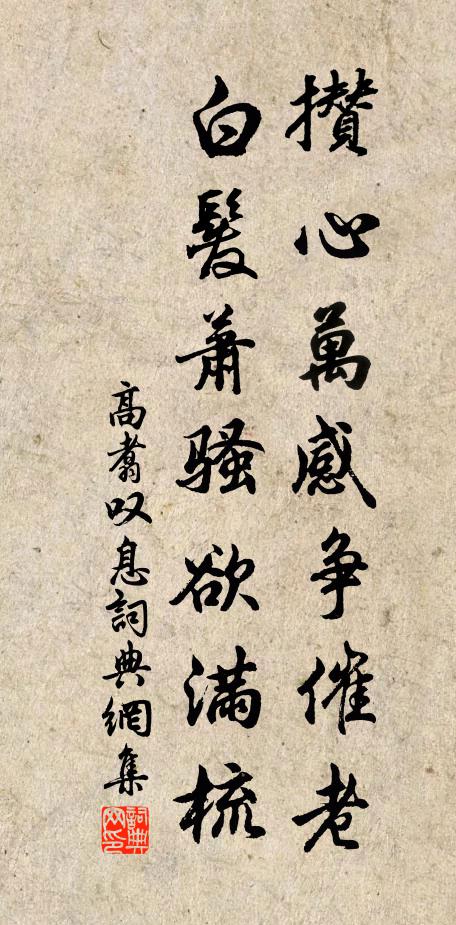 攢心萬感爭催老
白髮蕭騷欲滿梳
高翥叹息詞典網集
詞典网印